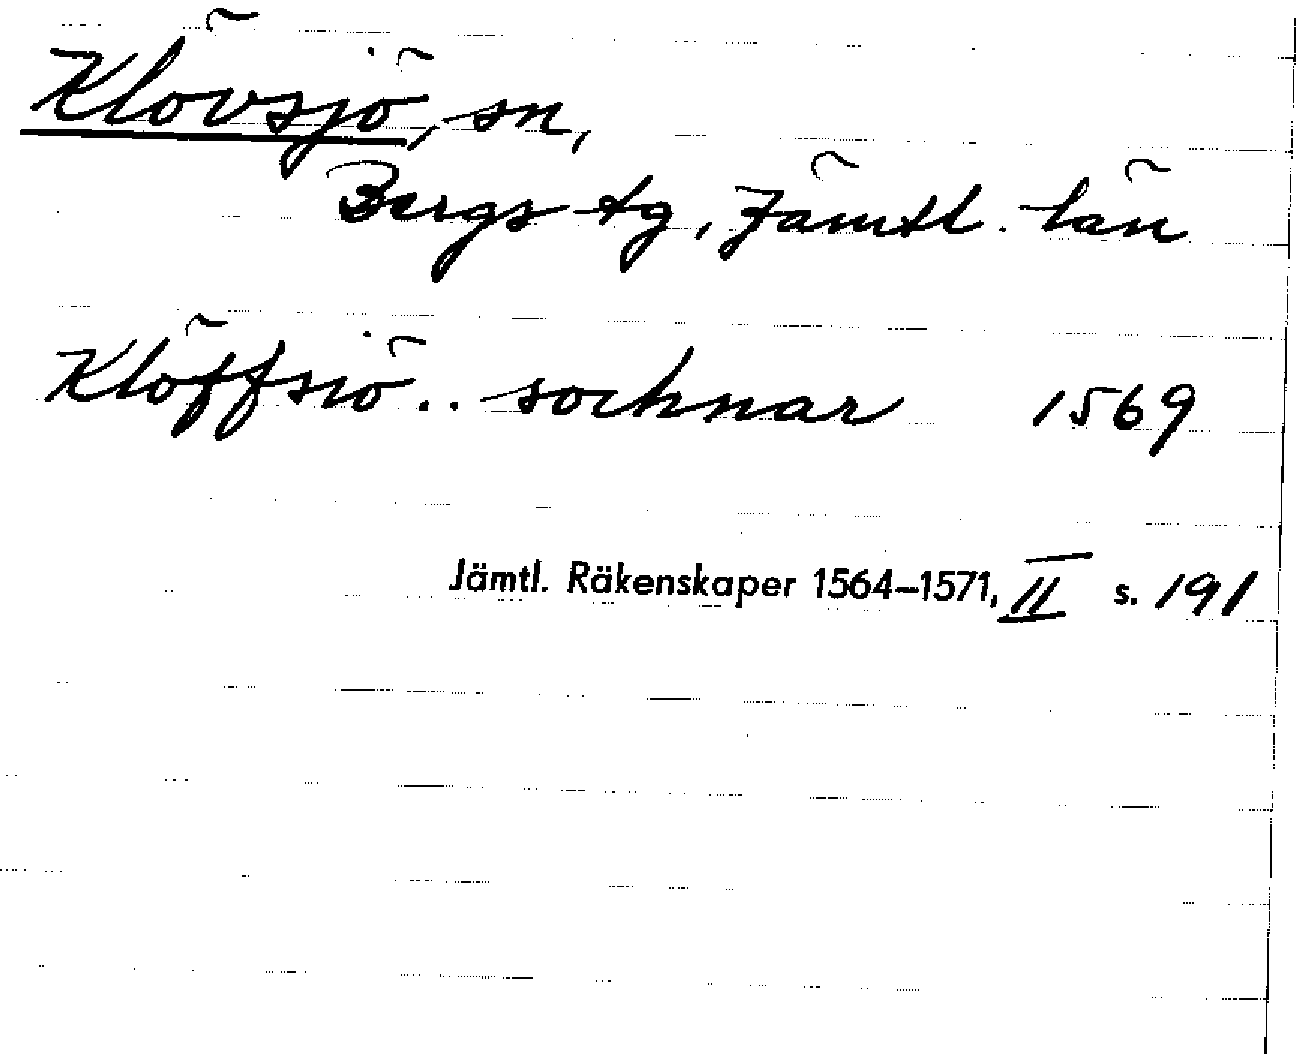 Klövsjö, sn,
Bergs tg, Jämtl. län
Klöffsiö .. sochnar 1569
Jämtl. Räkenskaper 1564–1571, II s. 191